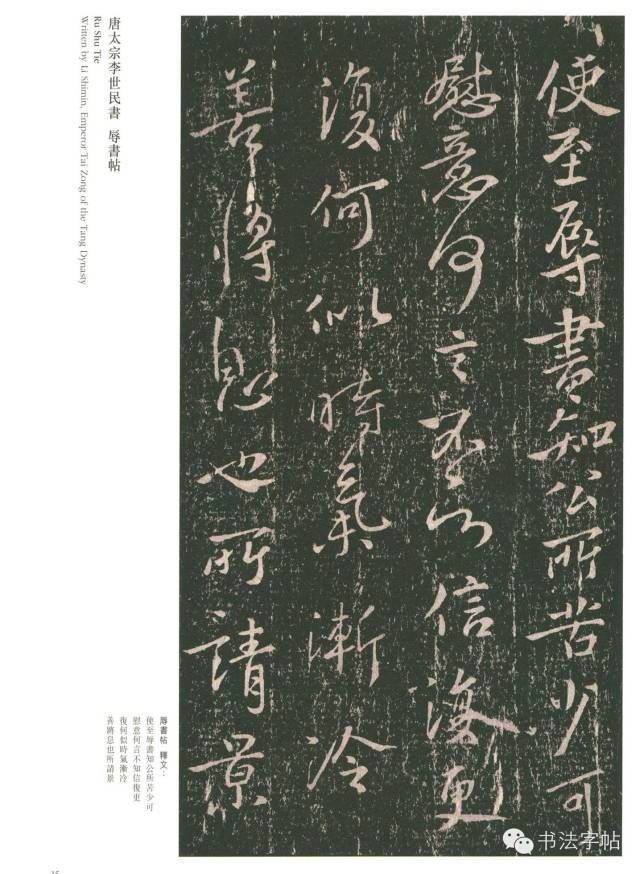 使至辱書知公所苦少可
慰意何言不知信復更
復何似時氣漸冷
善將息也所請景
唐太宗李世民書 辱書帖
Ru Shu Tie
Written by Li Shimin, Emperor Tai Zong of the Tang Dynasty
辱書帖 釋文：
使至辱書知公所苦少可
慰意何言不知信復更
復何似時氣漸冷
善將息也所請景
书法字帖